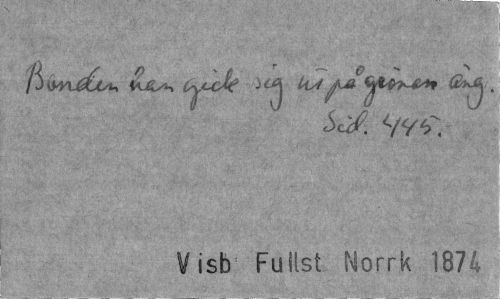 Bonden han gick sig ut på grönan äng.
Sid. 445.
Visb Fullst Norrk 1874